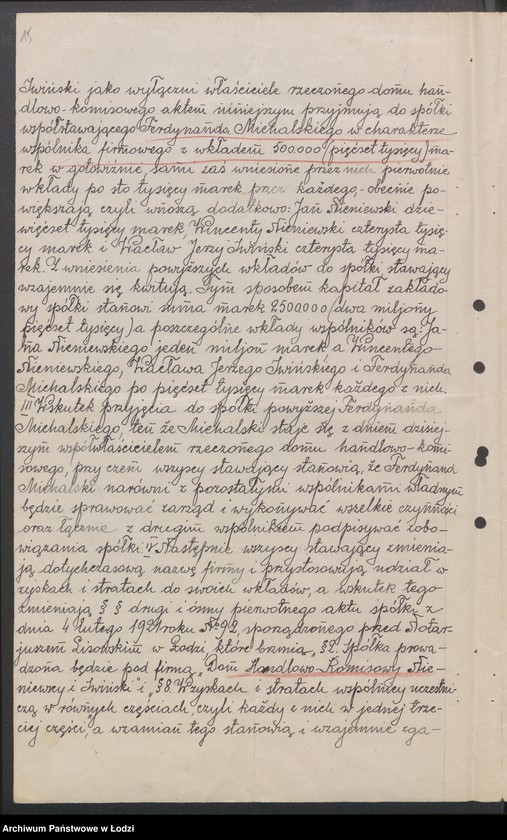 15
Iwiński jako wyłączni właściciele rzeczonego domu han-
dlowo-komisowego aktem niniejszym przyjmują do spółki
współstawającego Ferdynanda Michalskiego w charakterze
wspólnika firmowego z wkładem 500.000 (pięćset tysięcy) ma-
rek w gotowiźnie, sami zaś wniesione przez nich pierwotnie
wkłady po sto tysięcy marek przez każdego, obecnie po-
większają, czyli wnoszą dodatkowo: Jan Nieniewski dzie-
więćset tysięcy marek, Wincenty Nieniewski czterysta tysię-
cy marek i Wacław Jerzy Iwiński czterysta tysięcy ma-
rek. Z wniesienia powyższych wkładów do spółki stawający
wzajemnie się kwitują. Tym sposobem kapitał zakłado-
wy spółki stanowi suma marek 2500000 (dwa miljony
pięćset tysięcy) a poszczególne wkłady wspólników są: Ja-
na Nieniewskiego jeden miljon marek a Wincentego
Nieniewskiego, Wacława Jerzego Iwińskiego i Ferdynanda
Michalskiego po pięćset tysięcy marek każdego z nich.
III Wskutek przyjęcia do spółki powyższej Ferdynanda
Michalskiego, tenże Michalski staje się z dniem dzisiej-
szym współwłaścicielem rzeczonego domu handlowo-komi-
sowego, przyczem wszyscy stawający stanowią, że Ferdynand
Michalski narówni z pozostałymi wspólnikami władnym
będzie sprawować zarząd i wykonywać wszelkie czynności
oraz łącznie z drugim wspólnikiem podpisywać zobo-
wiązania spółki. IV Następnie wszyscy stawający zmienia-
ją dotychczasową nazwę firmy i przystosowują udział w
zyskach i stratach do swoich wkładów, a wskutek tego
zmieniają § § drugi i ósmy pierwotnego aktu spółki z
dnia 4 lutego 1921 roku № 92, sporządzonego przed Notar-
juszem Lisowskim w Łodzi, które brzmią „§ 2. Spółka prowa-
dzona będzie pod firmą „Dom Handlowo-Komisowy Nie-
niewscy i Iwiński" i „§ 8. W zyskach i stratach wspólnicy uczestni-
czą w równych częściach, czyli każdy z nich w jednej trze-
ciej części", a wzamian tego stanowią i wzajemnie zga-
Archiwum Państwowe w Łodzi